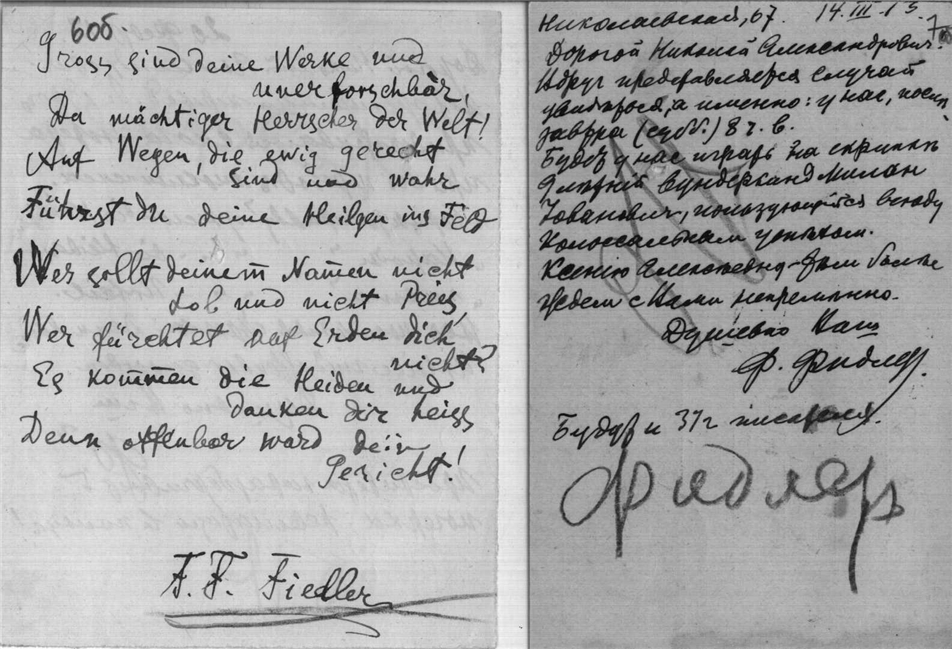 60б.
Gross sind deine Werke und
unerforschbar,
Du mächtiger Herrscher der Welt!
Auf Wegen, die ewig gerecht
sind und wahr
Führst du deine Heilgen ins Feld
Wer sollt deinem Namen nicht
Lob und nicht Preis,
Wer fürchtet auf Erden dich
nicht?
Es kommen die Heiden und
danken dir heiss,
Denn offenbar ward dein
Gericht!
F. F. Fiedler
Николаевская, 67. 14. III. 13.
Дорогой Николай Александрович.
Вдруг представляется случай
увидаться, а именно: у нас,
завтра (субб.) 8 ч. в.
Будет у нас играть на скрипке
летний вундеркинд Милан
Іованович, пользующийся всюду
колоссальным успехом.
Ксенію Алексеевну
ждем с Вами непременно.
Душевно Ваш
Ф. Фидлер.
Будут и
Фидлер